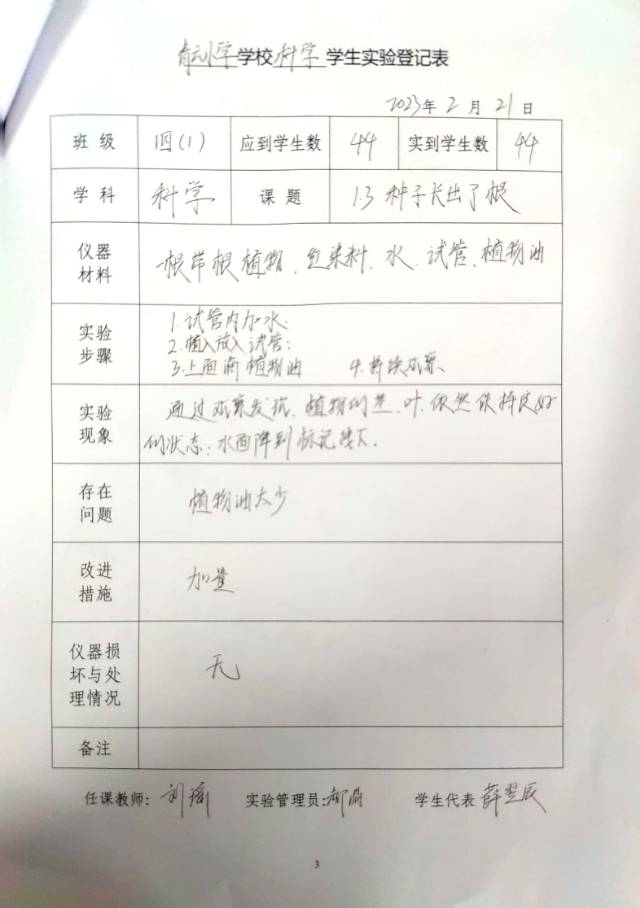 小学学校科学学生实验登记表
2023年2月21日
班级 四(1) 应到学生数 44 实到学生数 44
学科 科学 课题 1.3 种子长出了根
仪器材料 一根带根植物、红染料、水、试管、植物油
实验步骤 1.试管内加水;
2.植入放入试管;
3.上面滴植物油 4.持续观察
实验现象 通过观察发现,植物的茎、叶依然保持良好
的状态;水面降到标记线下.
存在问题 植物油太少
改进措施 加量
仪器损坏与处理情况 无
备注
任课教师: 刘 实验管理员: 学生代表 薛翌辰
3